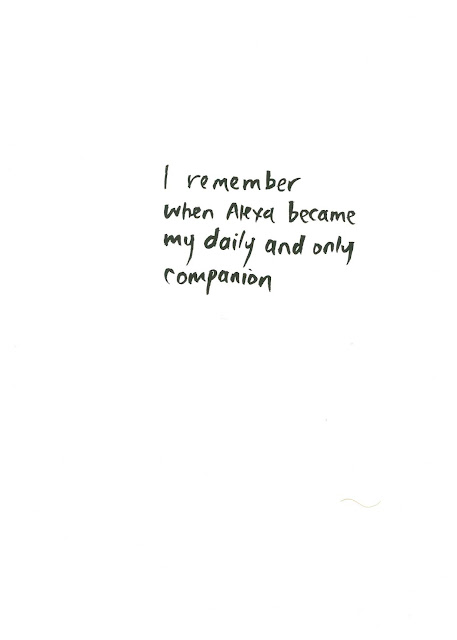 I remember
when Alexa became
my daily and only
companion